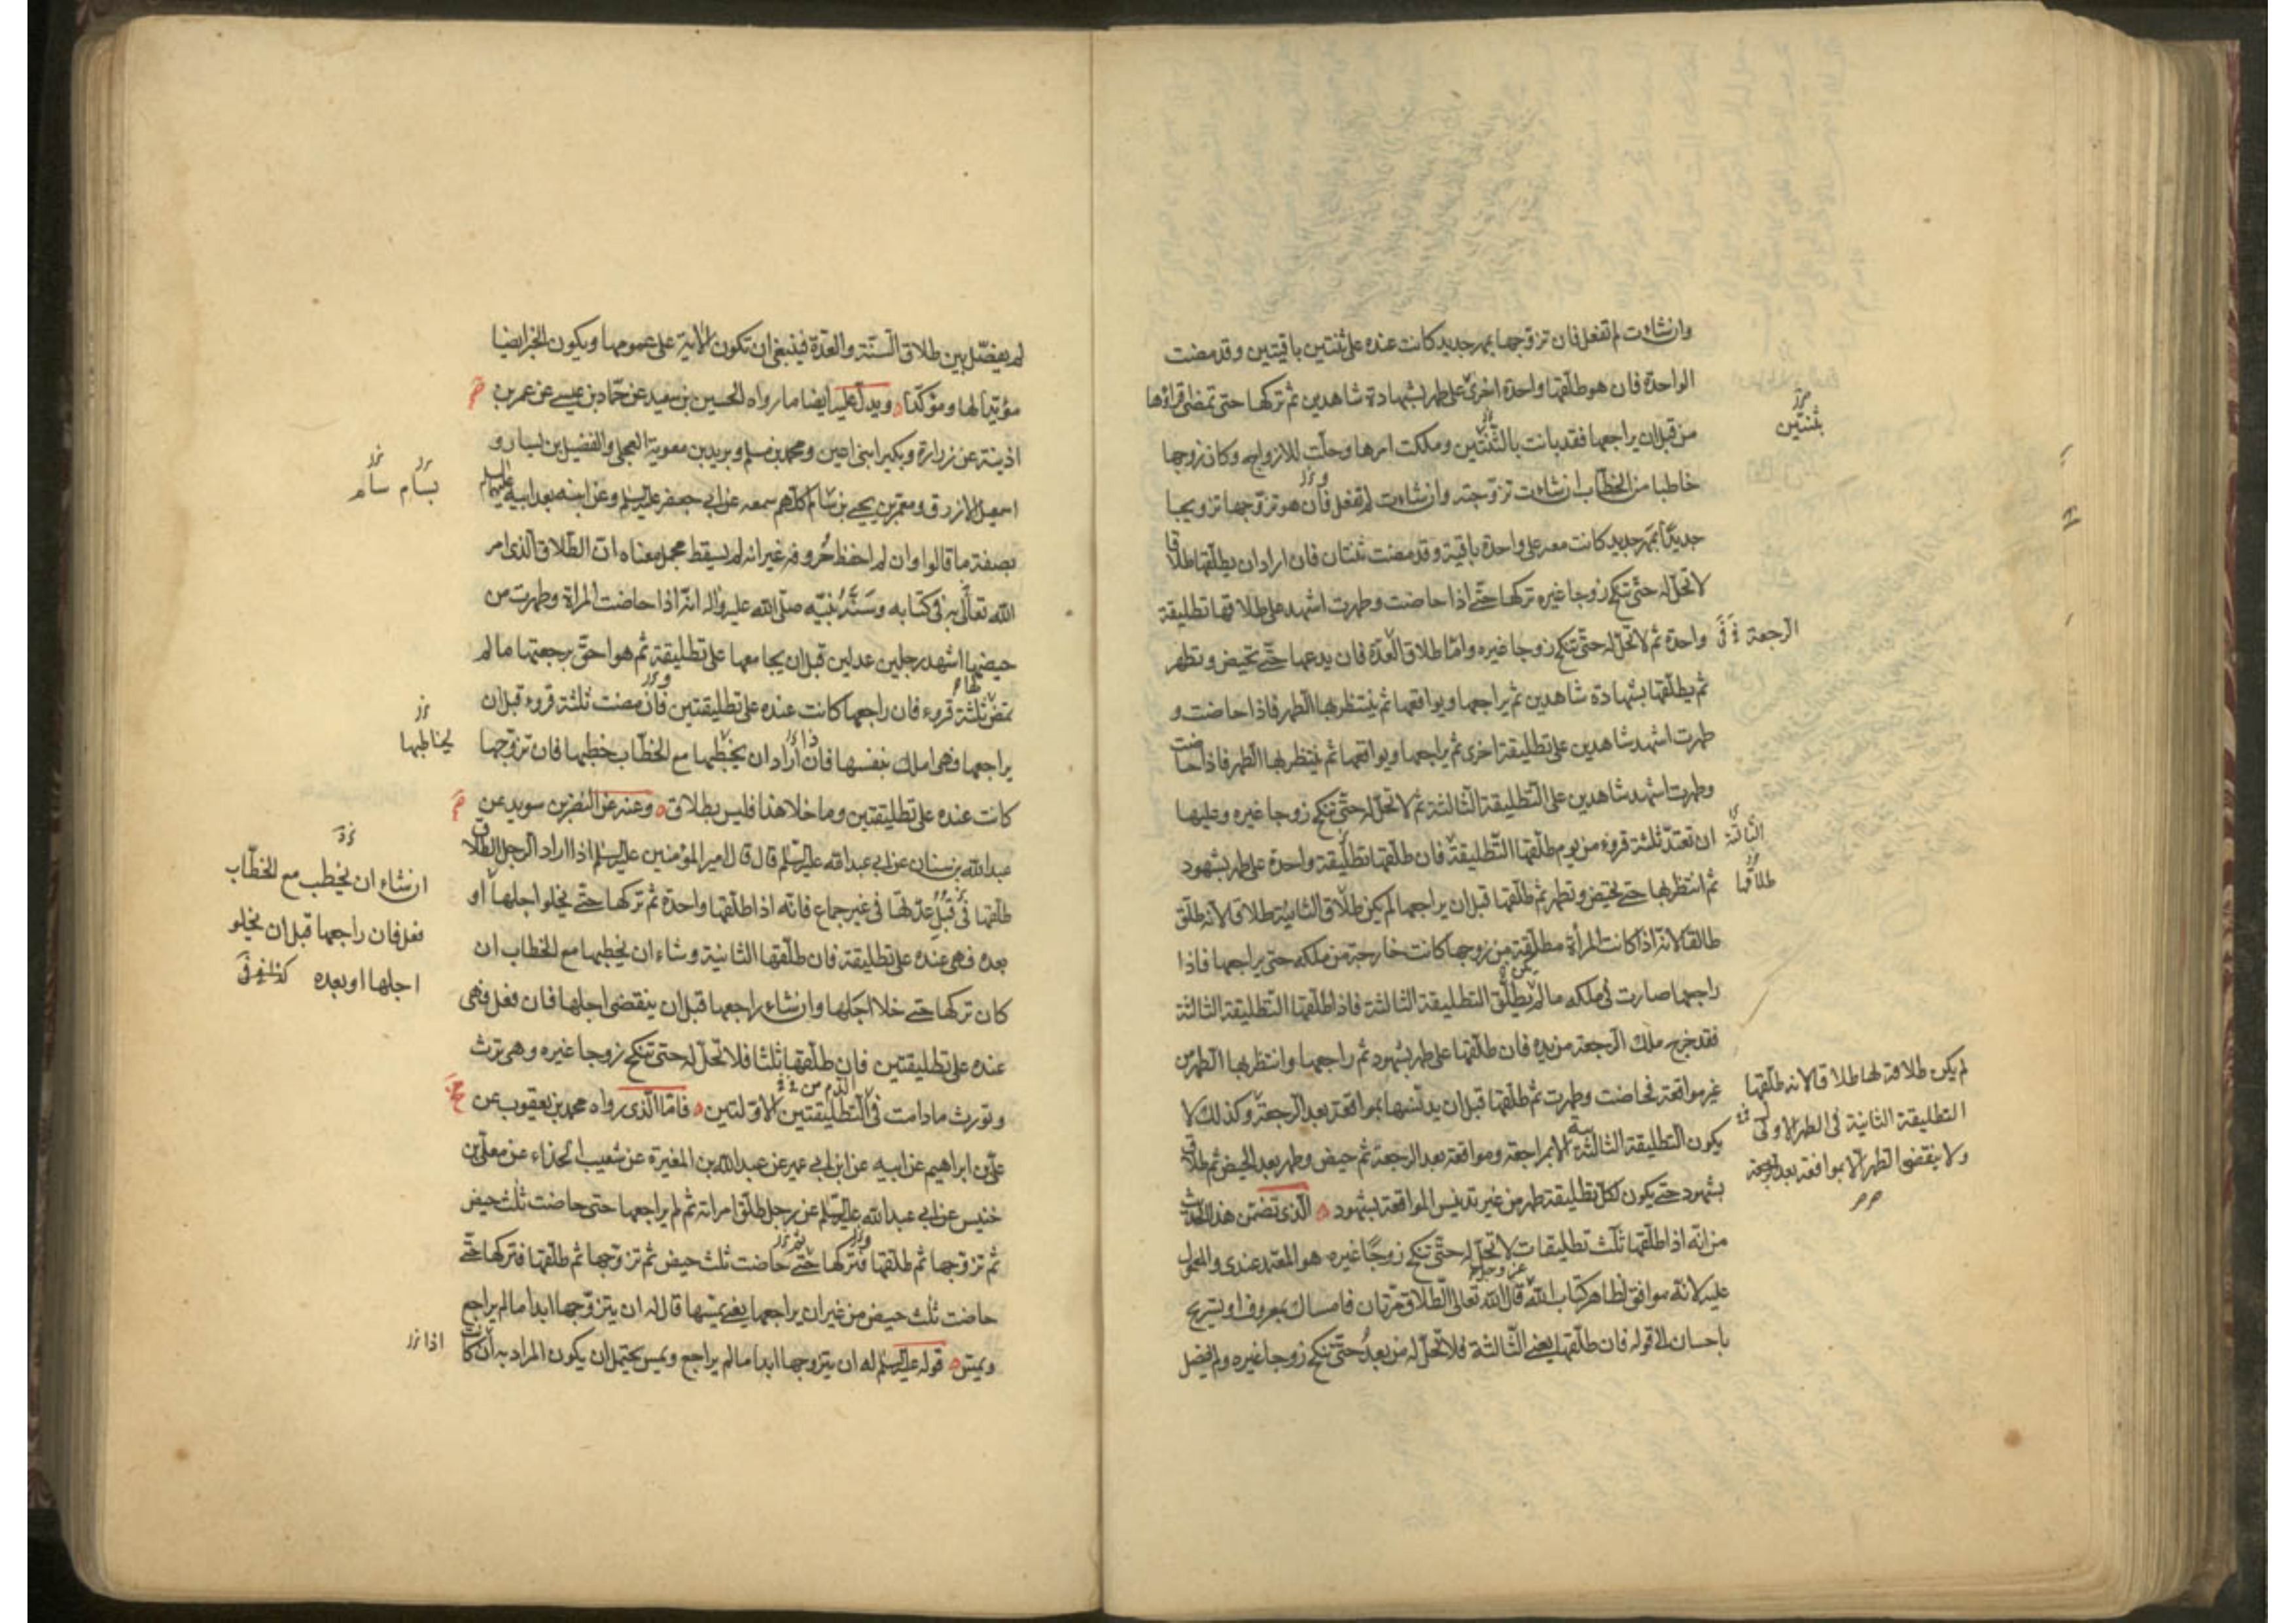 وان شاءت لم تفعل فان تزوجها بمهر جديد كانت عنده على ثنتين باقيتين وقد مضت
الواحدة فان هو طلقها واحدة اخرى على طهر بشهادة شاهدين ثم تركها حتى تمضى اقراؤها
بثنتين
من قبل ان يراجعها فقد بانت بالثنتين وملكت امرها وحلت للازواج وكان زوجها
خاطبا من الخطاب ان شاءت تزوجته وان شاءت لم تفعل فان هو تزوجها تزويجا
جديدا بمهر جديد كانت معه على واحدة باقية وقد مضت ثنتان فان اراد ان يطلقها طلاقا
لا تحل له حتى تنكح زوجا غيره تركها حتى اذا حاضت وطهرت اشهد على طلاقها تطليقة
واحدة ثم لا تحل له حتى تنكح زوجا غيره واما طلاق العدة فان يدعها حتى تحيض وتطهر
الرجعة
ثم يطلقها بشهادة شاهدين ثم يراجعها ويواقعها ثم ينتظر بها الطهر فاذا حاضت و
طهرت اشهد شاهدين على تطليقة اخرى ثم يراجعها ويواقعها ثم ينتظر بها الطهر فاذا حاضت
وطهرت اشهد شاهدين على التطليقة الثالثة ثم لا تحل له حتى تنكح زوجا غيره وعليها
ان تعتد ثلثة قروء من يوم طلقها التطليقة فان طلقها تطليقة واحدة على طهر بشهود
الثالثة
ثم انتظر بها حتى تحيض وتطهر ثم طلقها قبل ان يراجعها لم يكن طلاق الثانية طلاقا لانه طلق
طلاقها
طالقا لانه اذا كانت المرأة مطلقة من زوجها كانت خارجة من ملكه حتى يراجعها فاذا
راجعها صارت فى ملكه ما لم يطلق التطليقة الثالثة فاذا طلقها التطليقة الثالثة
فقد خرج ملك الرجعة من يده فان طلقها على طهر بشهود ثم راجعها وانتظر بها الطهر من
غير مواقعة فحاضت وطهرت ثم طلقها قبل ان يدنسها بمواقعة بعد الرجعة وكذلك لا
لم يكن طلاقه لها طلاقا لانه طلقها
التطليقة الثانية فى الطهر الاولى
ولا ينقضى الطهر الا بمواقعة بعد الرجعة
يكون التطليقة الثالثة الا بمراجعة ومواقعة بعد الرجعة ثم حيض وطهر بعد الحيض ثم طلاق
بشهود حتى يكون لكل تطليقة طهر من غير تدنيس المواقعة بشهود الذى تضمن هذا الحديث
من انه اذا طلقها ثلث تطليقات لا تحل له حتى تنكح زوجا غيره هو المعتمد عندى والمعول
عليه لانه موافق لظاهر كتاب الله قال الله تعالى الطلاق مرتان فامساك بمعروف او تسريح
باحسان الى قوله فان طلقها يعنى الثالثة فلا تحل له من بعد حتى تنكح زوجا غيره ولم يفصل
لم يفصل بين طلاق السنة والعدة فينبغى ان تكون الاية على عمومها ويكون الخبر ايضا
مؤيدا لها ومؤكدا ويدل عليه ايضا ما رواه الحسين بن سعيد عن حماد بن عيسى عن عمر بن
اذينة عن زرارة وبكير ابنى اعين ومحمد بن مسلم وبريد بن معوية العجلى والفضيل بن يسار و
اسمعيل الازرق ومعمر بن يحيى بن سام كلهم سمعه عن ابى جعفر عليه السلم وعن ابنه بعد ابيه عليهما السلم
بسام سام
بصفة ما قالوا وان لم احفظ حروفه غير انه لم يسقط مجمل معناه ان الطلاق الذى امر
الله تعالى به فى كتابه وسنة نبيه صلى الله عليه واله انه اذا حاضت المراة وطهرت من
حيضها اشهد رجلين عدلين قبل ان يجامعها على تطليقة ثم هو احق برجعتها ما لم
تمض ثلثة قروء فان راجعها كانت عنده على تطليقتين فان مضت ثلثة قروء قبل ان
يراجعها وهى املك بنفسها فان اراد ان يخطبها مع الخطاب خطبها فان تزوجها
كانت عنده على تطليقتين وما خلا هذا فليس بطلاق وعنه عن النضر بن سويد عن
عبد الله بن سنان عن ابى عبد الله عليه السلم قال قال امير المؤمنين عليه السلم اذا اراد الرجل الطلاق
طلقها فى قبل عدتها فى غير جماع فانه اذا طلقها واحدة ثم تركها حتى يخلو اجلها او
ان شاء ان يخطب مع الخطاب
فعل فان راجعها قبل ان يخلو
اجلها او بعده
بعده فهى عنده على تطليقة فان طلقها الثانية وشاء ان يخطبها مع الخطاب ان
كان تركها حتى خلا اجلها وان شاء راجعها قبل ان ينقضى اجلها فان فعل فهى
عنده على تطليقتين فان طلقها ثلثا فلا تحل له حتى تنكح زوجا غيره وهى ترث
وتورث ما دامت فى التطليقتين الاولتين فاما الذى رواه محمد بن يعقوب عن
على بن ابراهيم عن ابيه عن ابن ابى عمير عن عبد الله بن المغيرة عن شعيب الحداء عن معلى بن
خنيس عن ابى عبد الله عليه السلم عن رجل طلق امراته ثم لم يراجعها حتى حاضت ثلث حيض
ثم تزوجها ثم طلقها فتركها حتى حاضت ثلث حيض ثم تزوجها ثم طلقها فتركها حتى
حاضت ثلث حيض من غير ان يراجعها يعنى يمسها قال له ان يتزوجها ابدا ما لم يراجع
ويمس قوله عليه السلم له ان يتزوجها ابدا ما لم يراجع ويمس يحتمل ان يكون المراد به ان كانت
اذا